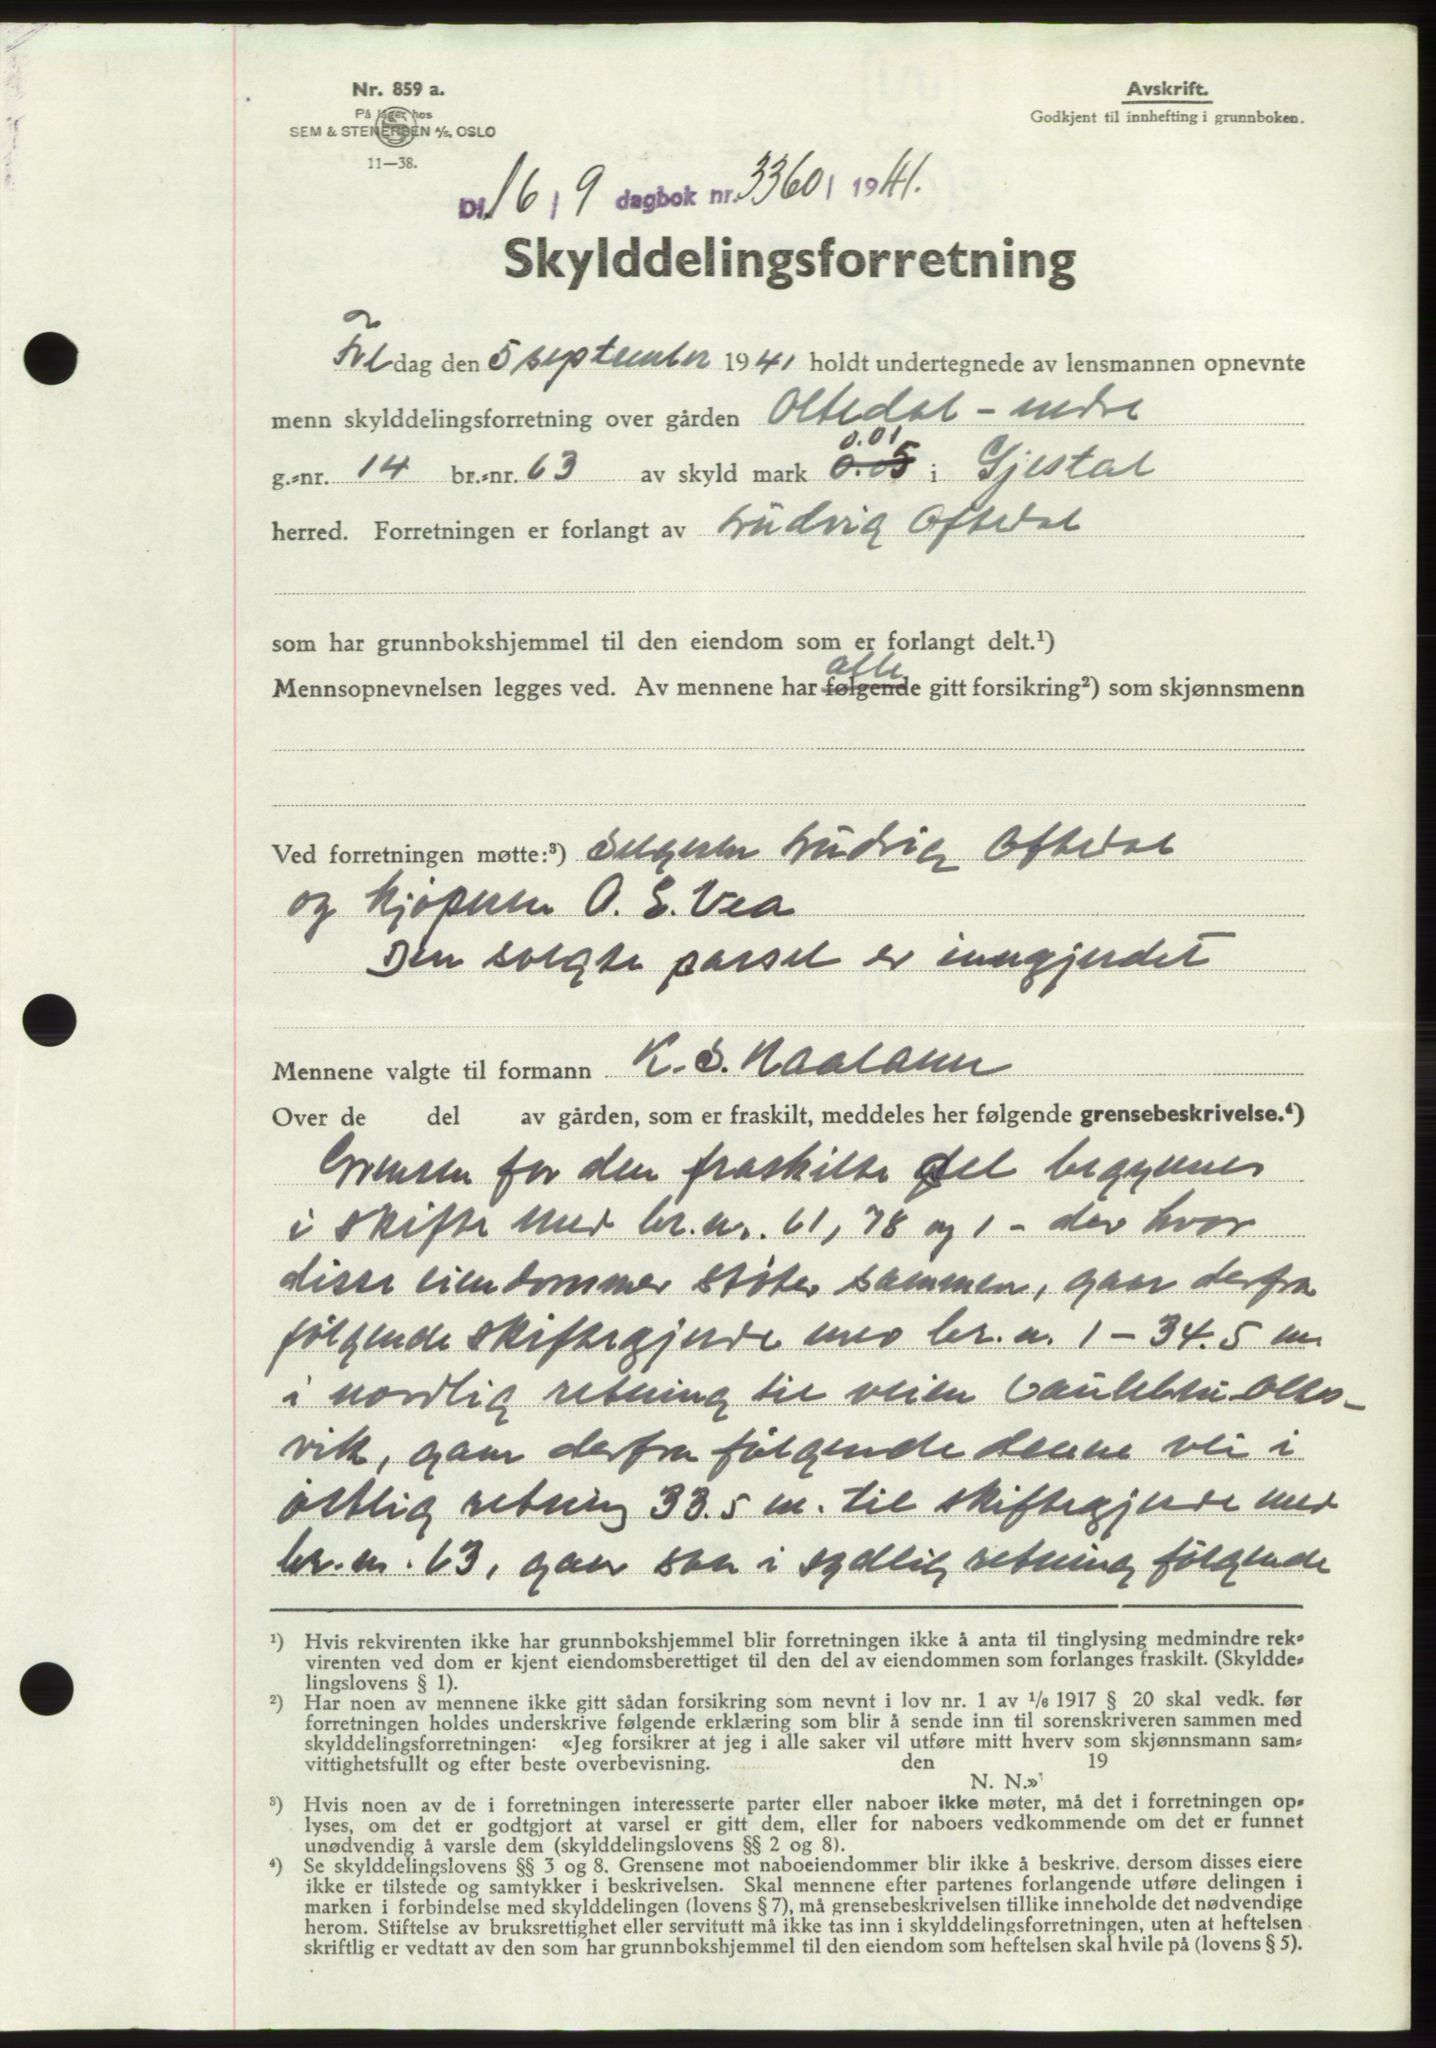 Nr. 859 a.
På lager hos
SEM & STENERSEN A/S, OSLO
11—38.
Avskrift.
Godkjent til innhefting i grunnboken.
Dl. 16 / 9 dagbok nr. 3360 / 1941.
Skylddelingsforretning
dag den 5 september 1941 holdt undertegnede av lensmannen opnevnte
menn skylddelingsforretning over gården Oltedal - nedre
0.01
g.=nr. 14 br.=nr. 63 av skyld mark 0.05 i Gjestal
herred. Forretningen er forlangt av Ludvig Oftedal
som har grunnbokshjemmel til den eiendom som er forlangt delt.¹)
alle
Mennsopnevnelsen legges ved. Av mennene har følgende gitt forsikring²) som skjønnsmenn
Ved forretningen møtte:³) Selgeren Ludvig Oftedal
og kjøperen O. E. Vea
Den solgte parsel er inngjerdet
Mennene valgte til formann K. S. Maaland
Over de del av gården, som er fraskilt, meddeles her følgende grensebeskrivelse.⁴)
Grensen for den fraskilte del begynner
i skifte med br.nr. 61, 78 og 1 - der hvor
disse eiendommer støter sammen, gaar derfra
følgende skiftegjerde med br.n. 1 - 34.5 m
i nordlig retning til veien
vik, gaar derfra følgende denne vei i
østlig retning 33.5 m. til skiftegjerde med
br.n. 63, gaar saa i sydlig retning følgende
¹) Hvis rekvirenten ikke har grunnbokshjemmel blir forretningen ikke å anta til tinglysing medmindre rek=
virenten ved dom er kjent eiendomsberettiget til den del av eiendommen som forlanges fraskilt. (Skyldde=
lingslovens § 1).
²) Har noen av mennene ikke gitt sådan forsikring som nevnt i lov nr. 1 av 1/6 1917 § 20 skal vedk. før
forretningen holdes underskrive følgende erklæring som blir å sende inn til sorenskriveren sammen med
skylddelingsforretningen: «Jeg forsikrer at jeg i alle saker vil utføre mitt hverv som skjønnsmann sam=
vittighetsfullt og efter beste overbevisning. den 19
N. N.»
³) Hvis noen av de i forretningen interesserte parter eller naboer ikke møter, må det i forretningen op=
lyses, om det er godtgjort at varsel er gitt dem, eller for naboers vedkommende om det er funnet
unødvendig å varsle dem (skylddelingslovens §§ 2 og 8).
⁴) Se skylddelingslovens §§ 3 og 8. Grensene mot naboeiendommer blir ikke å beskrive, dersom disses eiere
ikke er tilstede og samtykker i beskrivelsen. Skal mennene efter partenes forlangende utføre delingen i
marken i forbindelse med skylddelingen (lovens § 7), må grensebeskrivelsen tillike inneholde det nødvendige
herom. Stiftelse av bruksrettighet eller servitutt må ikke tas inn i skylddelingsforretningen, uten at heftelsen
skriftlig er vedtatt av den som har grunnbokshjemmel til den eiendom som heftelsen skal hvile på (lovens § 5).